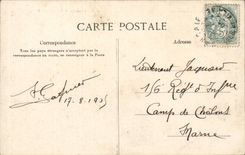 CARTE POSTALE
Correspondance
Tous les pays étrangers n'acceptent pas
la correspondance au recto, se renseigner à la Poste
Adresse
Lieutenant Jacquard
1/6 Regt d'Infrie
Camp de Chalons
Marne
17.8.1905